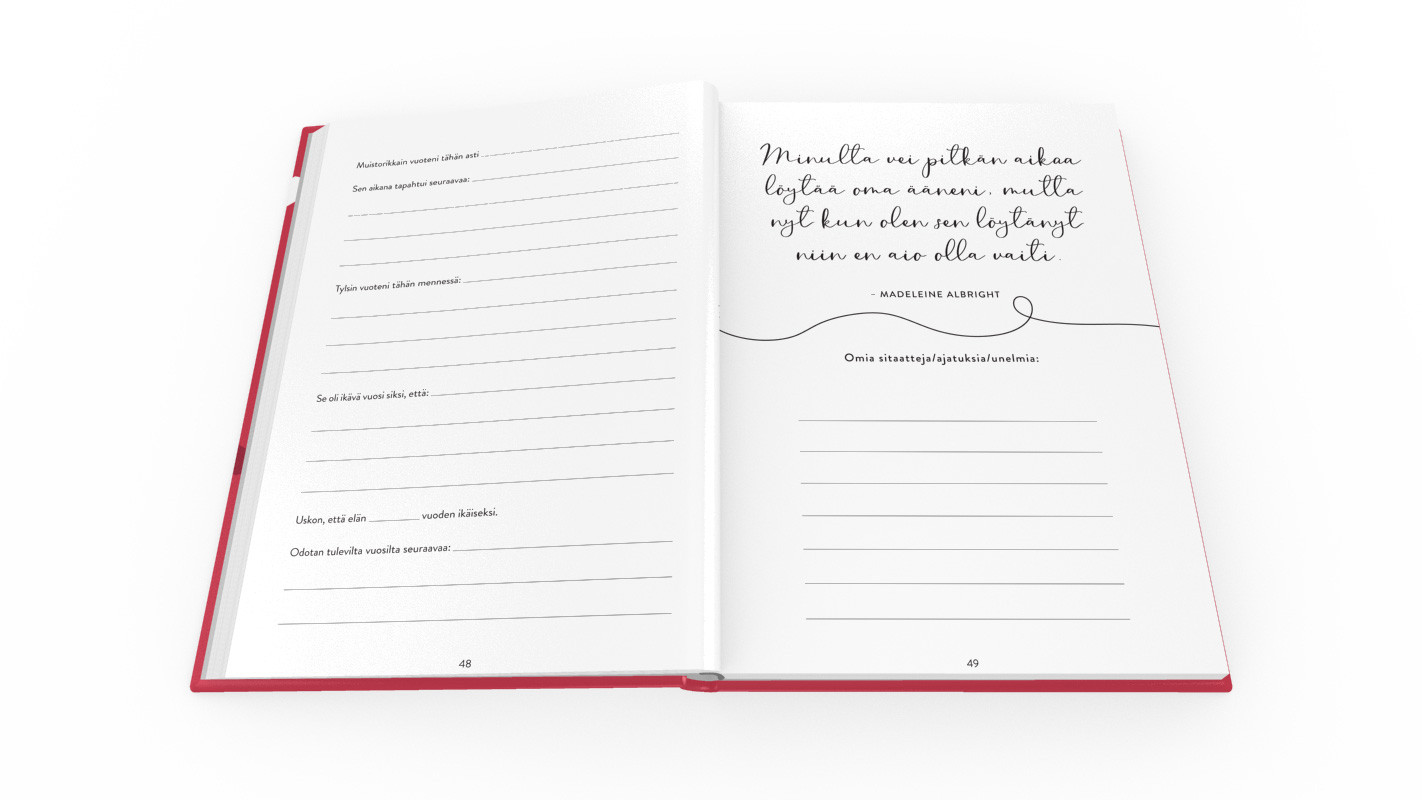 Muistorikkain vuoteni tähän asti
Sen aikana tapahtui seuraavaa:
Tylsin vuoteni tähän mennessä:
Se oli ikävä vuosi siksi, että:
Uskon, että elän ________ vuoden ikäiseksi.
Odotan tulevilta vuosilta seuraavaa:
48
Minulta vei pitkän aikaa
löytää oma ääneni, mutta
nyt kun olen sen löytänyt
niin en aio olla vaiti.
– MADELEINE ALBRIGHT
Omia sitaatteja/ajatuksia/unelmia:
49